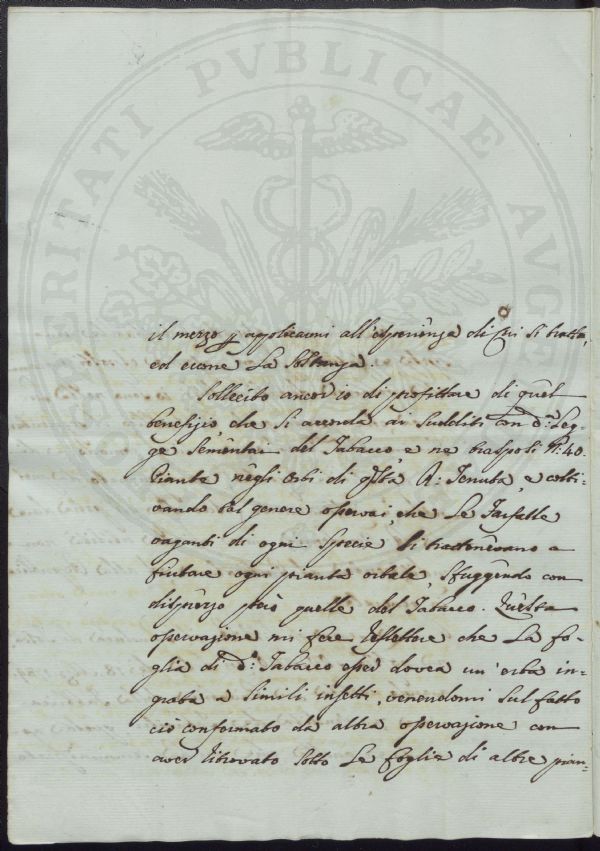 PROSPERITATI PVBLICAE AVGENDAE
il mezzo p applicarmi all'esperienza di cui si tratta,
ed eccone la sostanza.
Sollecito ancor io di profittare di quel
benefizio, che si accorda ai sudditi con d.ª Leg-
ge sementai del Tabacco, e ne traspoli N: 40.
Piante negli orbi di qsta R: Tenuta, e colti-
vando tal genere osservai, che le Farfalle
vaganti di ogni specie si trattenevano a
fiutare ogni pianta ortale, sfuggendo con
disprezzo però quelle del Tabacco. Questa
osservazione mi fece riflettere che la fo-
glia di d.º Tabacco esser dovea un'erba in-
grata a simili insetti, venendomi sul fatto
ciò confermato da altra osservazione con
aver ritrovato sotto le foglie di altre pian-